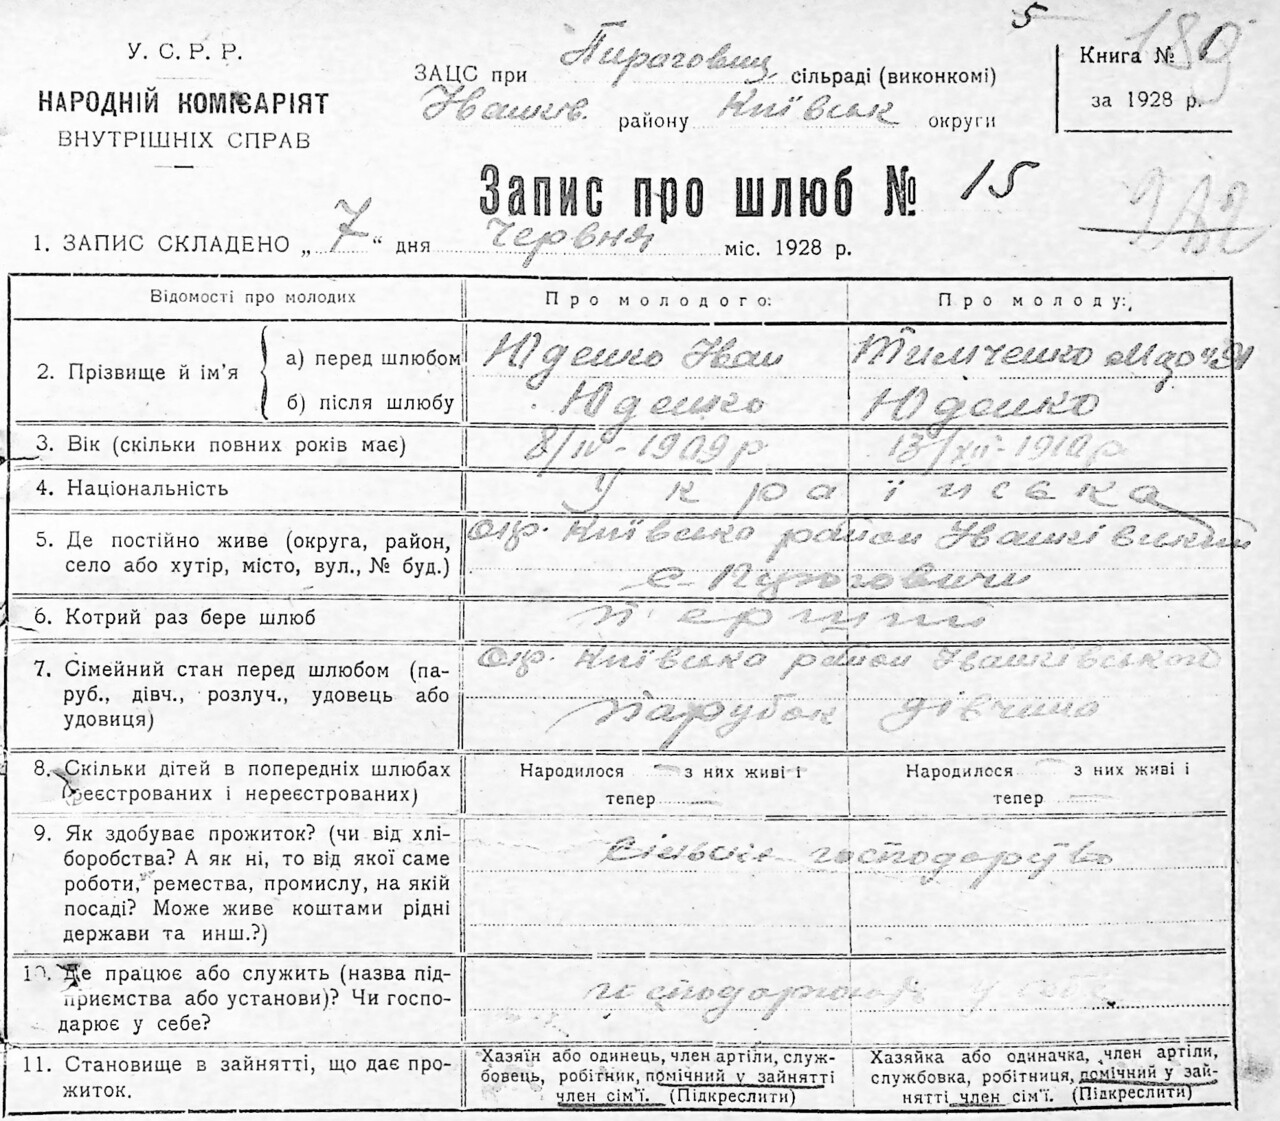 5
У. С. Р. Р.
НАРОДНІЙ КОМІСАРІЯТ
ВНУТРІШНІХ СПРАВ
ЗАЦС при Пирогович сільраді (виконкомі)
Івашків. району Київськ округи
Книга № 1
за 1928 р.
189
Запис про шлюб № 15
242
1. ЗАПИС СКЛАДЕНО „ 7 “ дня червня міс. 1928 р.
Відомості про молодих
Про молодого:
Про молоду:
2. Прізвище й ім’я
а) перед шлюбом
Юденко Іван
Тимченко
б) після шлюбу
Юденко
Юденко
3. Вік (скільки повних років має)
8/IV - 1909 р
13/XII - 1910 р
4. Національність
Українська
5. Де постійно живе (округа, район,
село або хутір, місто, вул., № буд.)
окр. Київсько район Івашківський
с. Пироговичи
6. Котрий раз бере шлюб
перший
7. Сімейний стан перед шлюбом (па-
руб., дівч., розлуч., удовець або
удовиця)
окр. Київсько район Івашківського
парубок
дівчина
8. Скільки дітей в попередніх шлюбах
(реєстрованих і нереєстрованих)
Народилося — з них живі і
тепер —
Народилося — з них живі і
тепер —
9. Як здобуває прожиток? (чи від хлі-
боробства? А як ні, то від якої саме
роботи, ремества, промислу, на якій
посаді? Може живе коштами рідні
держави та инш.?)
сільське господарство
10. Де працює або служить (назва під-
приємства або установи)? Чи госпо-
дарює у себе?
у себе
11. Становище в зайнятті, що дає про-
житок.
Хазяїн або одинець, член артіли, служ-
бовець, робітник, помічний у зайнятті
член сім’ї. (Підкреслити)
Хазяйка або одиначка, член артіли,
службовка, робітниця, помічний у зай-
нятті член сім’ї. (Підкреслити)